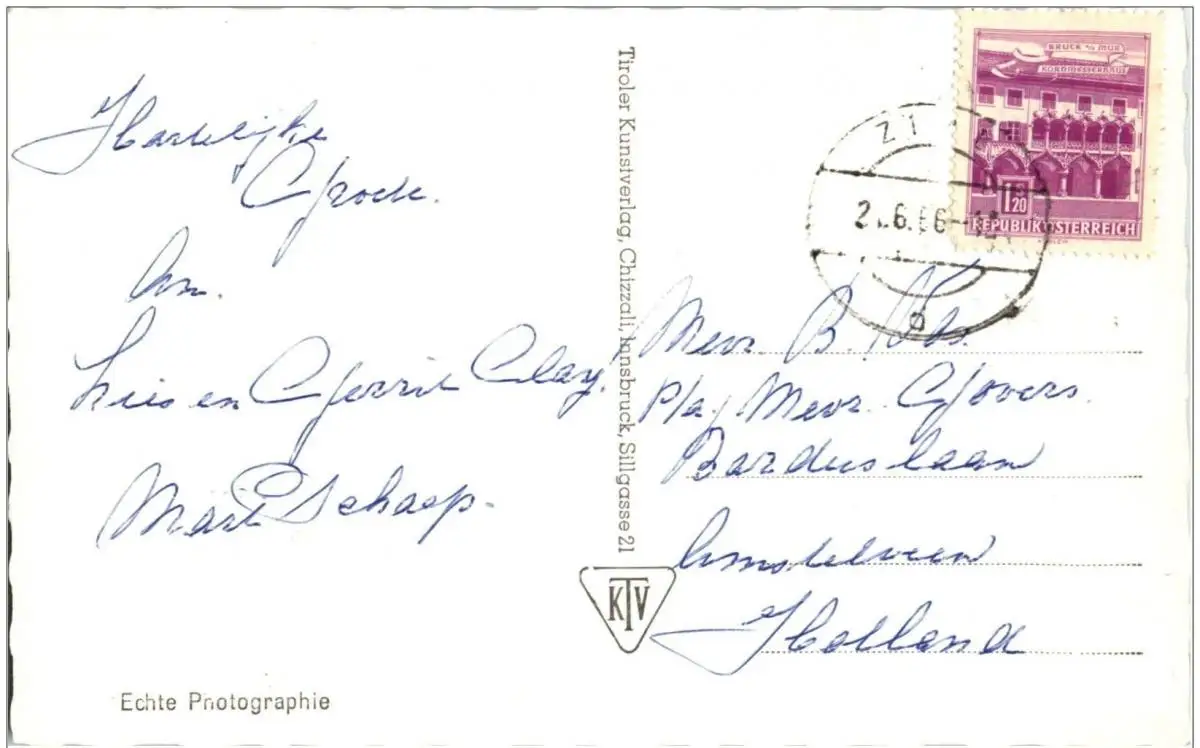 Hartelijke
Groete.
Am.
Lies en Gerrit Clay.
Mart Schaap.
Echte Photographie
Tiroler Kunstverlag, Chizzali, Innsbruck, Sillgasse 21
KTV
BRUCK a/d MUR
KORNMESSERHAUS
S 1.20
REPUBLIK ÖSTERREICH
6.66
Mevr B. Vos.
p/a, Mevr. Govers.
Barduslaan
Amstelveen
Holland